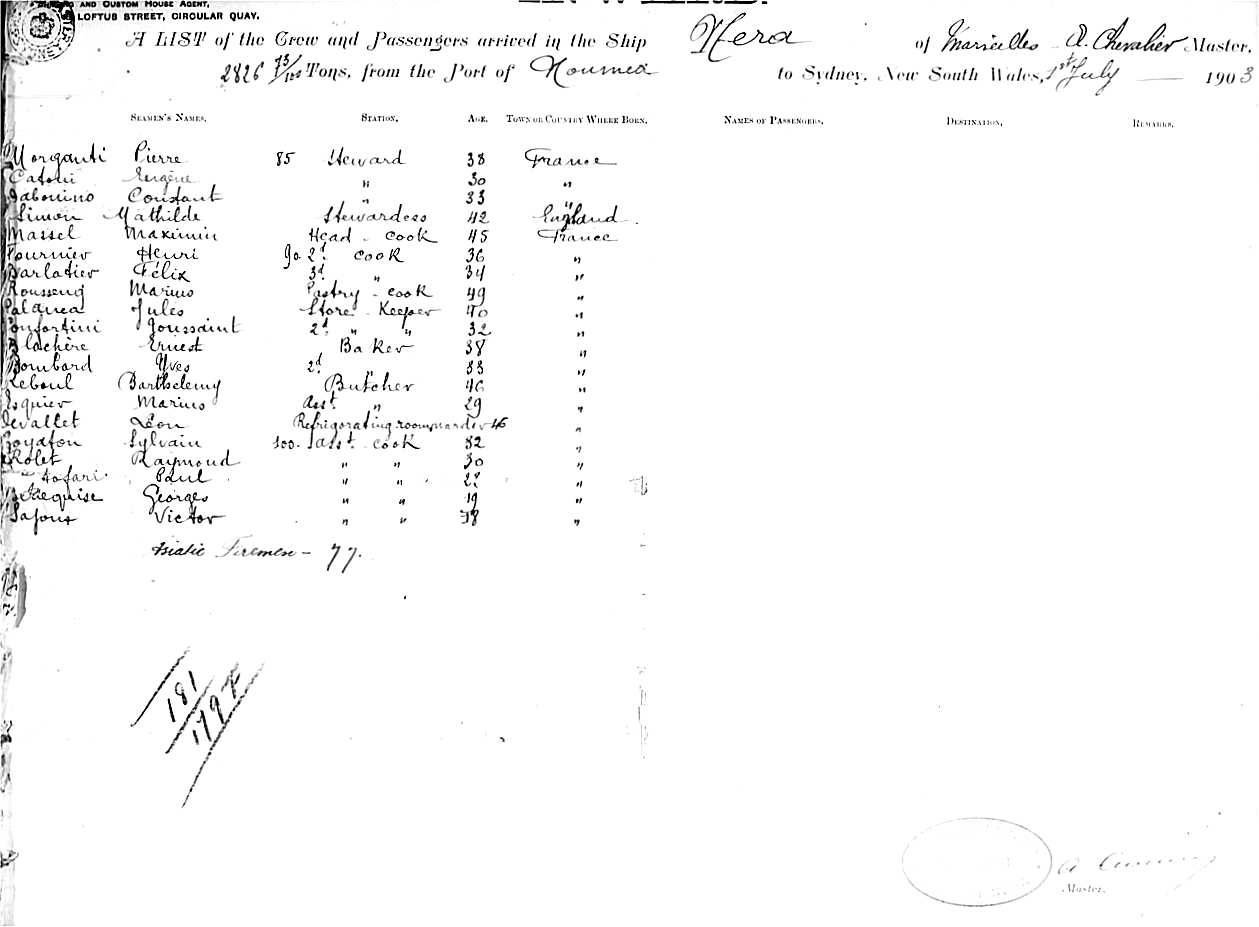 AND CUSTOM HOUSE AGENT,
LOFTUS STREET, CIRCULAR QUAY.
A LIST of the Crew and Passengers arrived in the Ship Nera of Marseilles A. Chevalier Master,
2826 73/100 Tons, from the Port of Noumea to Sydney, New South Wales, 1st July 1903
SEAMEN'S NAMES, STATION, AGE, TOWN OR COUNTRY WHERE BORN, NAMES OF PASSENGERS, DESTINATION, REMARKS,
Morganti Pierre 85 Steward 38 France
Catoni Eugène " 30 "
Constant " 33 "
Simon Mathilde Stewardess 42 England
Massel Maximin Head - cook 45 France
Fournier Henri 90 2d cook 36 "
Barlatier Félix 3d " 34 "
Marius Pastry - cook 49 "
Palanca Jules Store Keeper 40 "
Confortini Toussaint 2d " " 32 "
Blachère Ernest Baker 38 "
Bombard Yves 2d " 33 "
Reboul Barthelemy Butcher 46 "
Esquier Marius Asst. " 29 "
Devallet Léon Refrigorating room warder 46 "
Sylvain 100. Asst. cook 32 "
Rolet Raymond " " 30 "
Paul " " 22 "
Georges " " 19 "
Lafont Victor " " 18 "
Asiatic Firemen - 77.
181
Master.